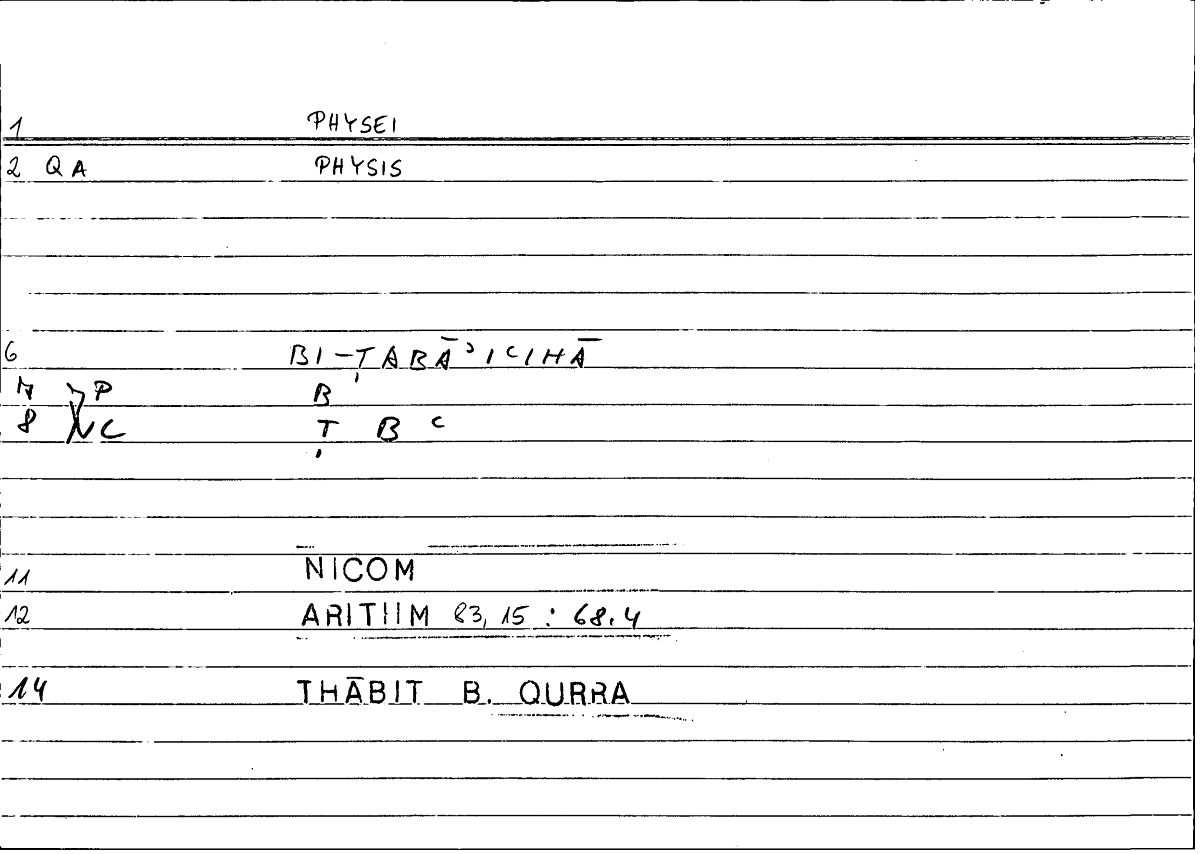 1 PHYSEI
2 QA PHYSIS
6 BI-ṬABĀʾIʿIHĀ
7 P B
8 NC Ṭ B ʿ
11 NICOM
12 ARITHM 83,15 : 68.4
14 THĀBIT B. QURRA